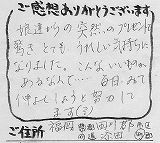 ご感想ありがとうございます。
娘達からの突然のプレゼント
驚きとてもうれしい気持ちに
なりました。こんないい物が
あるなんて… 毎日みて
仲よしようと努力して
ます(る)
ご住所 福岡 田川郡
添田